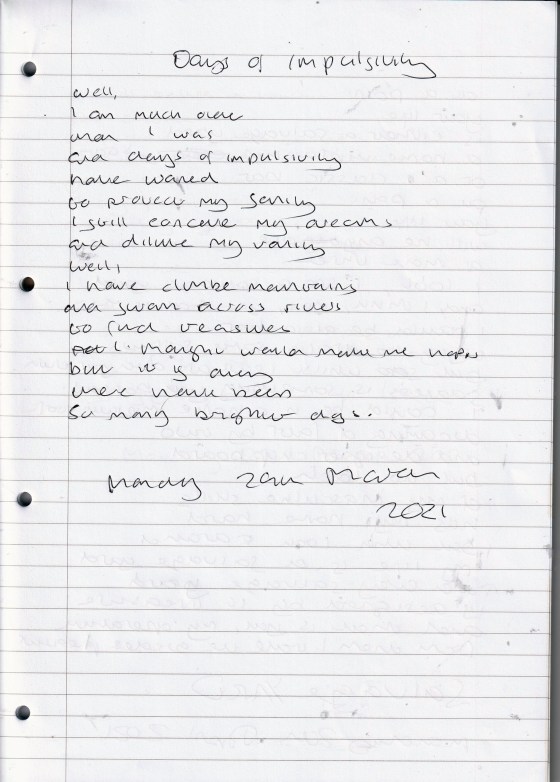 Days of impulsivity
Well,
I am much older
than I was
and days of impulsivity
have waned
to protect my sanity
I still conceive my dreams
and dilute my vanity
Well,
I have climbe mountains
and swam across rivers
to find treasures
I thought would make me happy
but it is
there have been
so many brighter days.
Monday March
2021